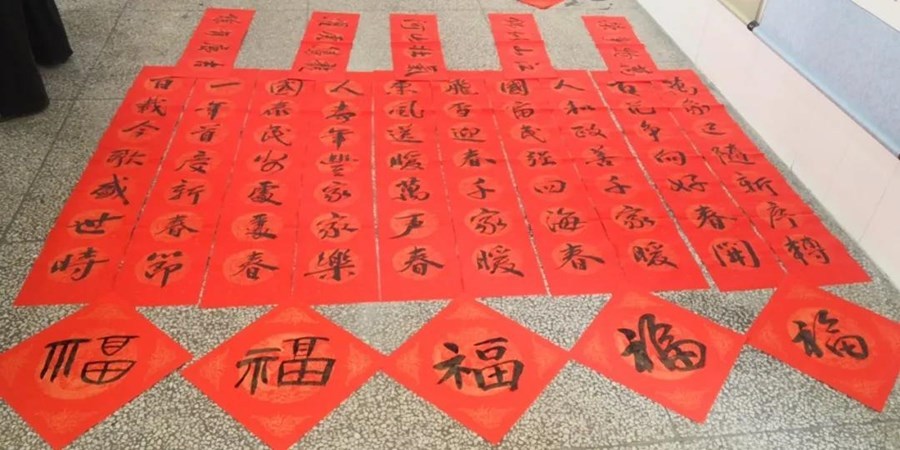 萬象已隨新序轉
百花爭向好春開
人和政善千家暖
國富民強四海春
飛雪迎春千家暖
東風送暖萬戶春
人壽年豐家家樂
國泰民安處處春
一年首慶新春節
百載今歌盛世時
福
福
福
福
福